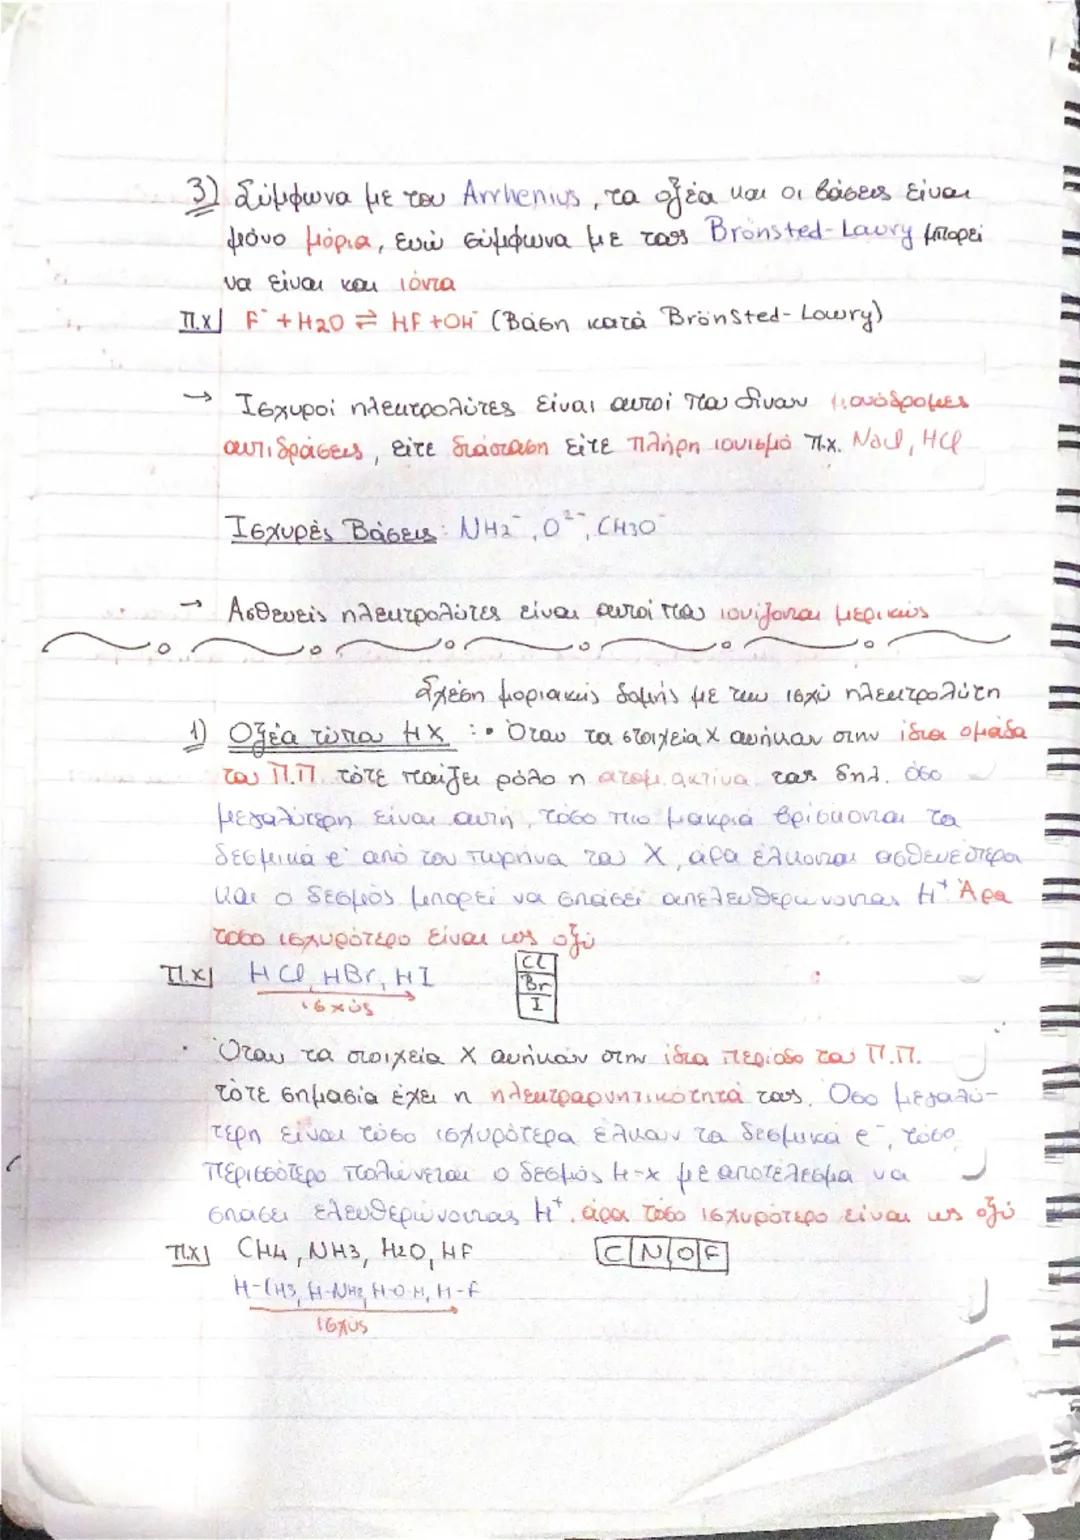 3) Σύμφωνα με τον Arrhenius, τα οξέα και οι βάσεις είναι
μόνο μόρια, ενώ σύμφωνα με τους Bronsted-Lawry μπορεί
να είναι και ιόντα
Π.Χ F⁻ + H2O ⇌ HF + OH⁻ (Βάση κατά Brönsted-Lowry)
→ Ισχυροί ηλεκτρολύτες είναι αυτοί που δίνουν μονόδρομες
αντιδράσεις, είτε διάσταση είτε πλήρη ιονισμό π.χ. NaCl, HCl
Ισχυρές Βάσεις: NH2⁻, O²⁻, CH3O⁻
→ Ασθενείς ηλεκτρολύτες είναι αυτοί που ιονίζονται μερικώς
Σχέση μοριακής δομής με την ισχύ ηλεκτρολύτη
1) Οξέα τύπου HX : • Όταν τα στοιχεία X ανήκουν στην ίδια ομάδα
του Π.Π. τότε παίζει ρόλο η ατομ. ακτίνα τους δηλ. όσο
μεγαλύτερη είναι αυτή, τόσο πιο μακριά βρίσκονται τα
δεσμικά e⁻ από τον πυρήνα του X, άρα έλκονται ασθενέστερα
και ο δεσμός μπορεί να σπάσει απελευθερώνοντας H⁺. Άρα
τόσο ισχυρότερο είναι ως οξύ
Π.Χ HCl, HBr, HI
ισχύς
Cl
Br
I
• Όταν τα στοιχεία X ανήκουν στην ίδια περίοδο του Π.Π.
τότε σημασία έχει η ηλεκτραρνητικότητά τους. Όσο μεγαλύ-
τερη είναι τόσο ισχυρότερα έλκουν τα δεσμικά e⁻, τόσο
περισσότερο πολώνεται ο δεσμός H-X με αποτέλεσμα να
σπάσει ελευθερώνοντας H⁺, άρα τόσο ισχυρότερο είναι ως οξύ
Π.Χ CH4, NH3, H2O, HF
C N O F
H-CH3, H-NH2, H-O-H, H-F
ισχύς